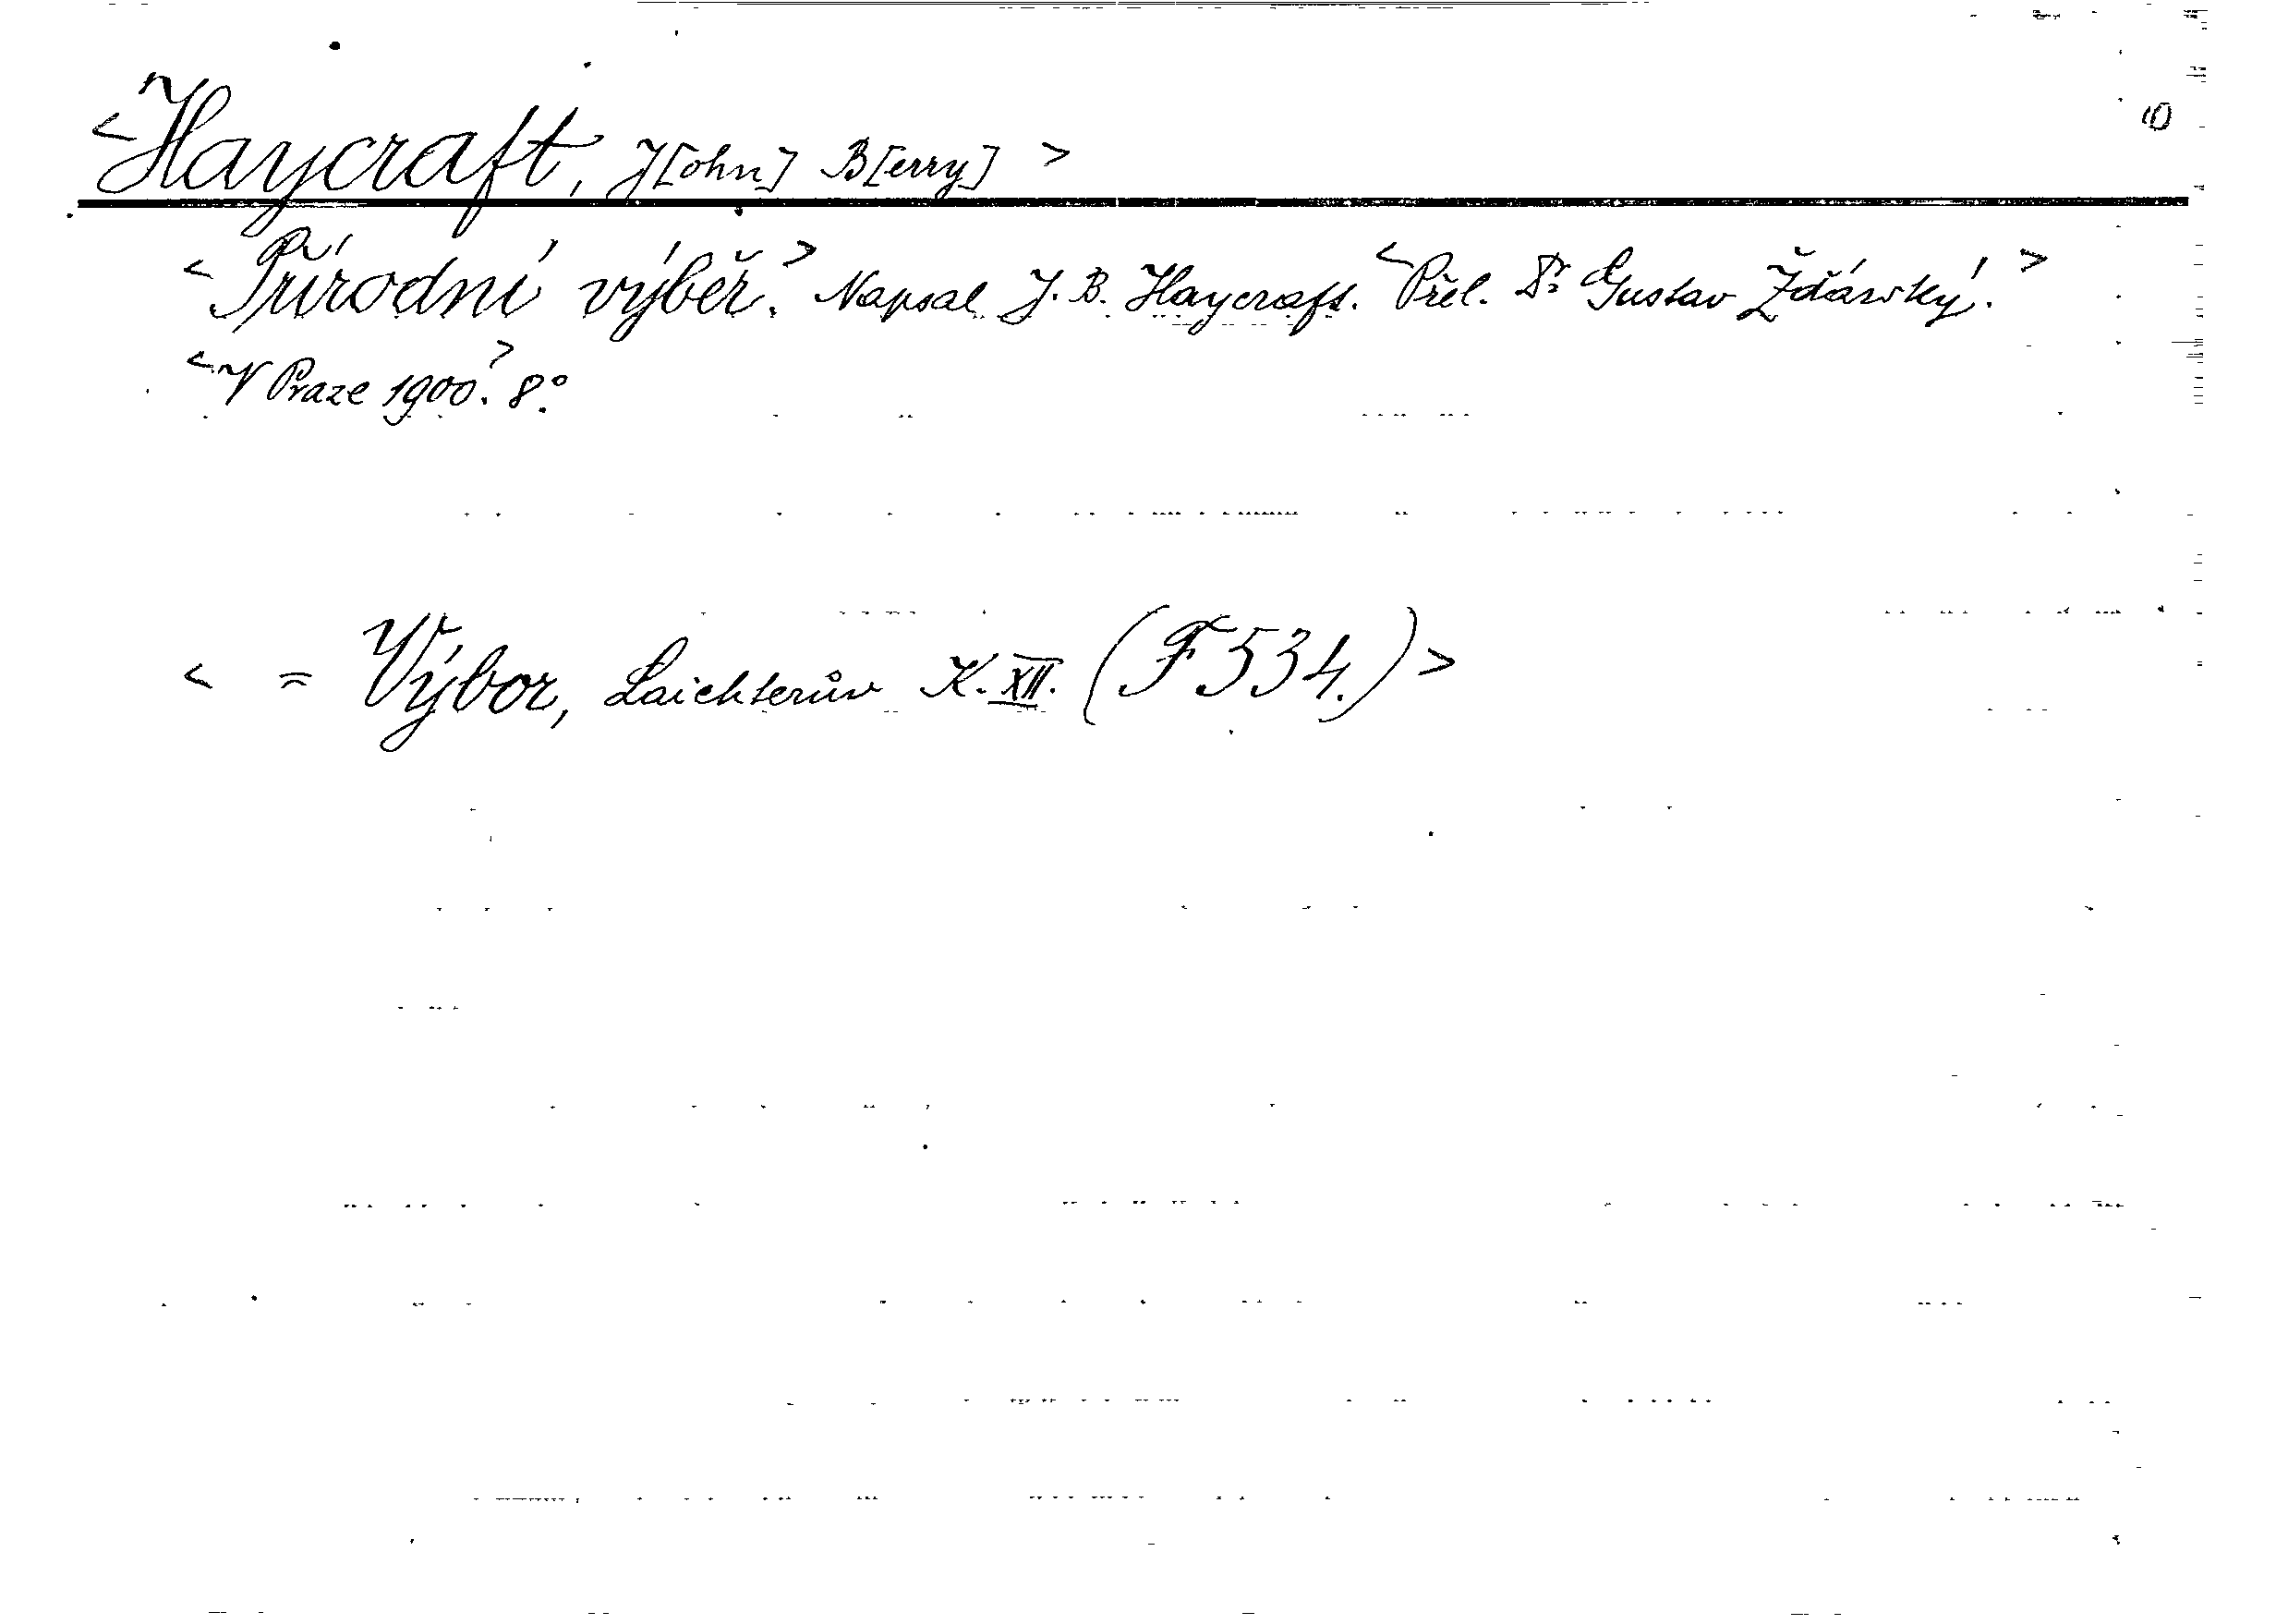 <Haycraft, J[ohn] B[erry] >
<Přírodní výběr.> Napsal J. B. Haycraft. <Přel. Dr. Gustav Žďárský.>
<V Praze 1900.> 8°.
< = Výbor, Laichterův K. XII. (F 534.) >